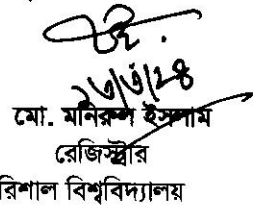 মো. মনিরুল ইসলাম
রেজিস্ট্রার
রিশাল বিশ্ববিদ্যালয়